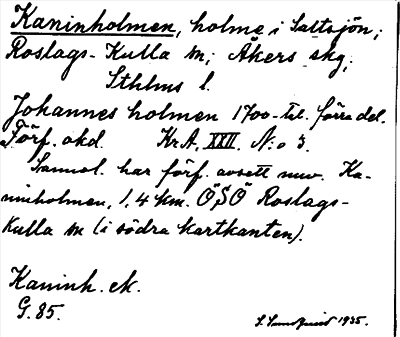 Kaninholmen, holme i Saltsjön;
Roslags-Kulla sn; Åkers skg;
Sthlms l.
Johannes holmen 1700-tal. förra del.
Förf. okd. Kr.A. XXII. N:o 3.
Sannol. har förf. avsett nuv. Ka-
ninholmen, 1,4 km. ÖSÖ Roslags-
Kulla sn (i södra kartkanten).
Kaninh. ek.
G. 85.
1935.